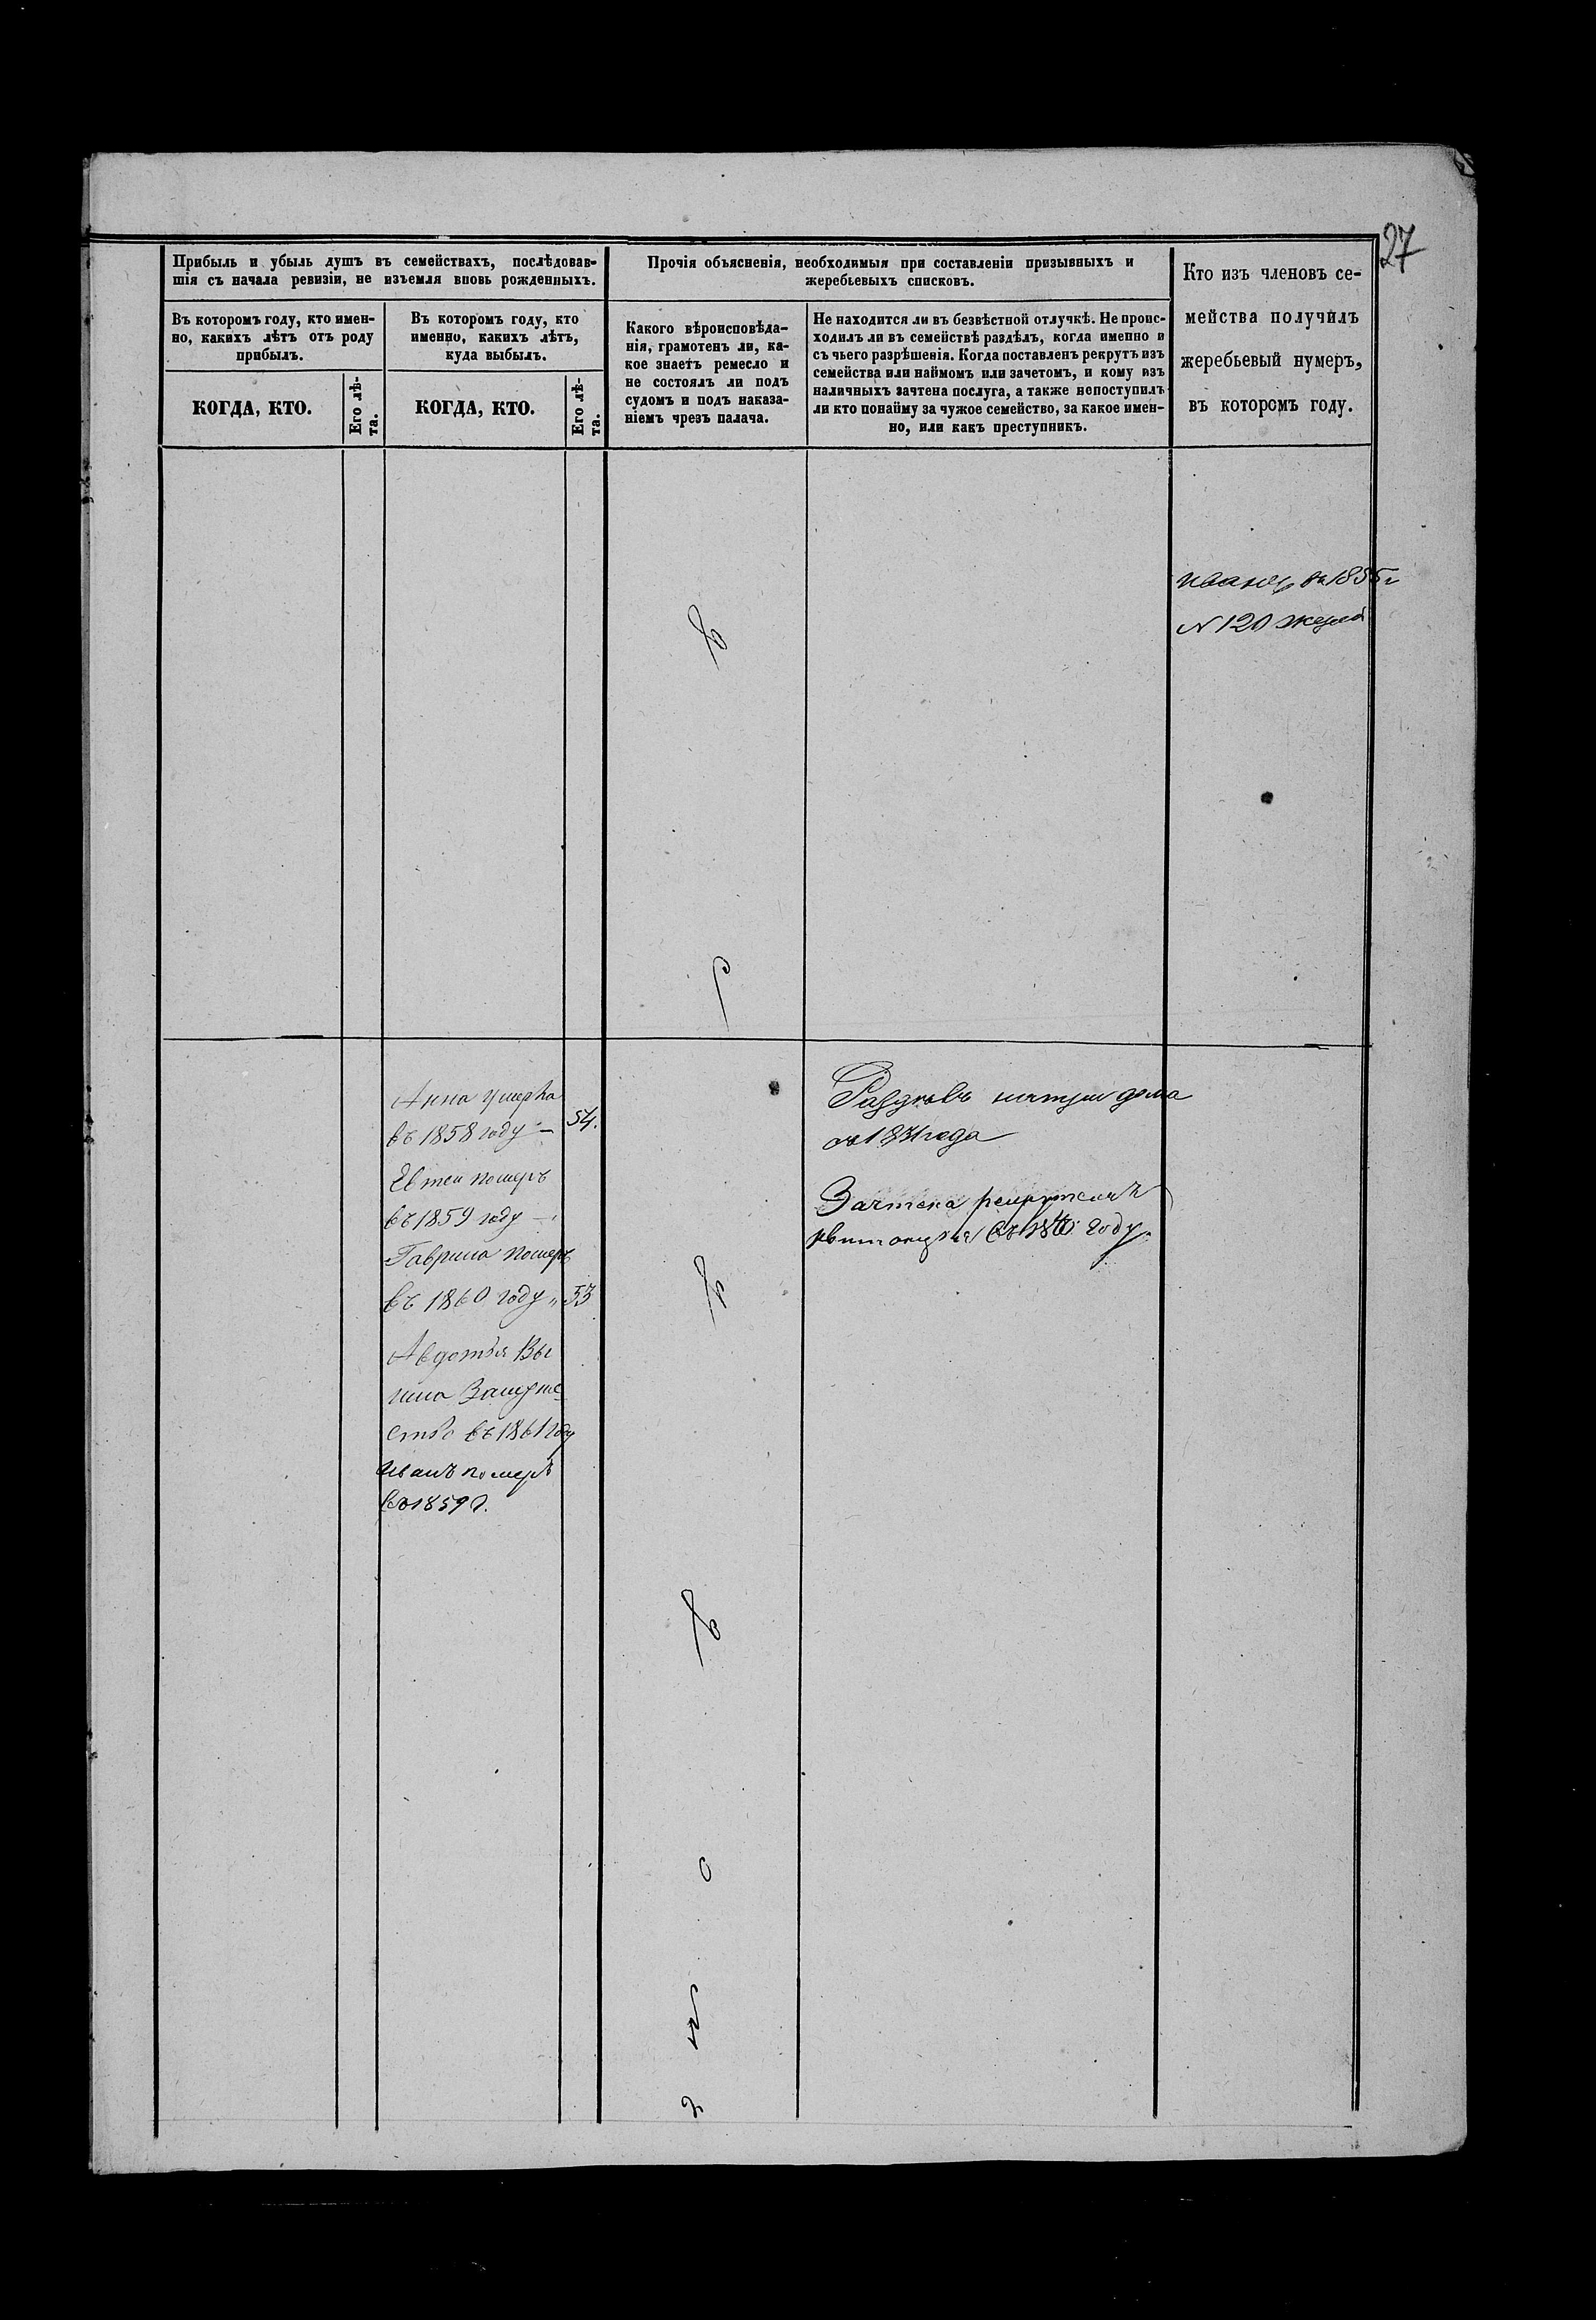 27
Прибыль и убыль душъ въ семействахъ, послѣдовав-
шія съ начала ревизіи, не изъемля вновь рожденныхъ.
Въ которомъ году, кто имен-
но, какихъ лѣтъ отъ роду
прибылъ.
КОГДА, КТО.
Его лѣ-
та.
Въ которомъ году, кто
именно, какихъ лѣтъ,
куда выбылъ.
КОГДА, КТО.
Его лѣ-
та.
Прочія объясненія, необходимыя при составленіи призывныхъ и
жеребьевыхъ списковъ.
Какого вѣроисповѣда-
нія, грамотенъ ли, ка-
кое знаетъ ремесло и
не состоялъ ли подъ
судомъ и подъ наказа-
ніемъ чрезъ палача.
Не находится ли въ безвѣстной отлучкѣ. Не проис-
ходилъ ли въ семействѣ раздѣлъ, когда именно и
съ чьего разрѣшенія. Когда поставленъ рекрутъ изъ
семейства или наймомъ или зачетомъ, и кому изъ
наличныхъ зачтена послуга, а также непоступилъ
ли кто понайму за чужое семейство, за какое имен-
но, или какъ преступникъ.
Кто изъ членовъ се-
мейства получилъ
жеребьевый нумеръ,
въ которомъ году.
1855
N 120
Анна умерла
въ 1858 году — 54.
Евтей померъ
въ 1859 году —
Гаврила померъ
въ 1860 году „ 53
Авдотья Вы
шла Замуже
ство въ 1861 году
Иванъ померъ
въ 1859 г.
Раздѣлъ натри дома
года
Зачтена рекрутская
квитанція въ году.